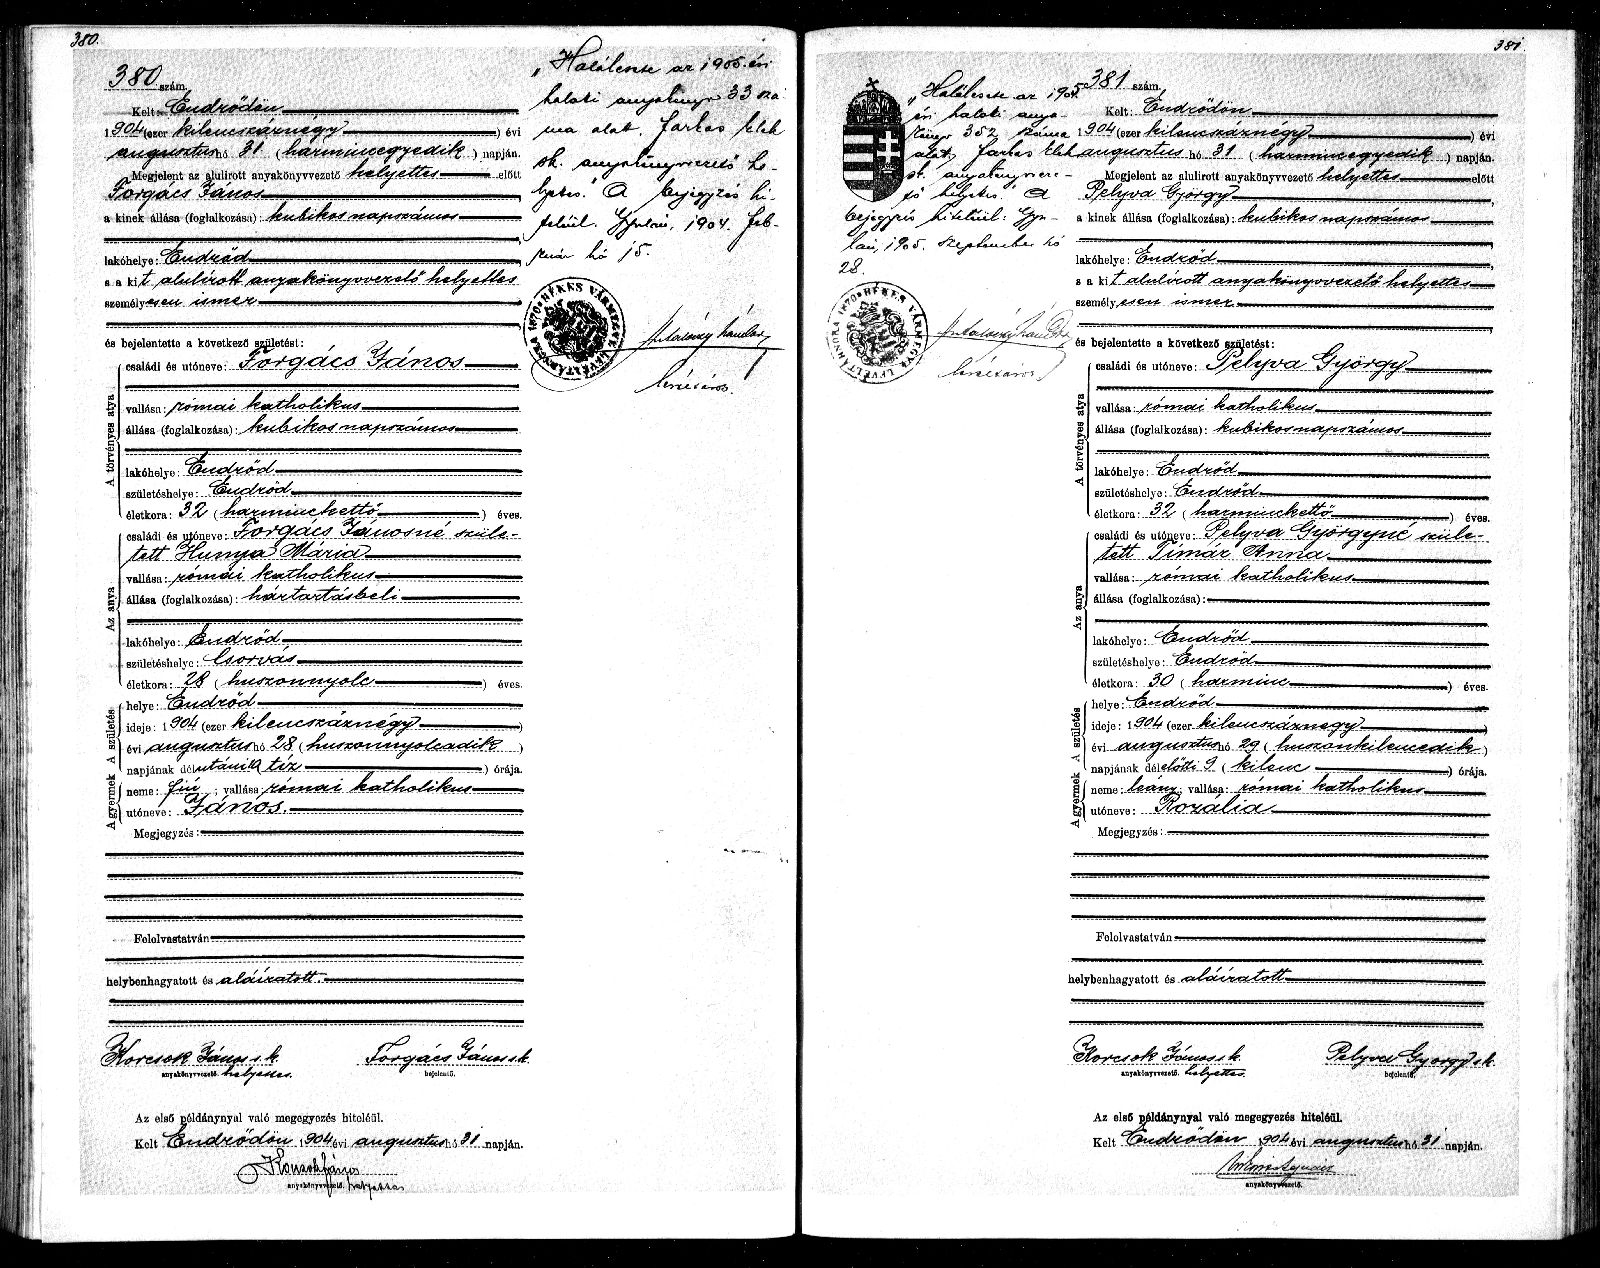 380.
380 szám.
Kelt: Endrődön
1904 (ezer kilencszáznégy) évi
augusztus hó 31 (harmincegyedik) napján.
Megjelent az alulirott anyakönyvvezető helyettes előtt
Forgács János
a kinek állása (foglalkozása): kubikos napszámos
lakóhelye: Endrőd
s a kit alulírott anyakönyvvezető helyettes
személyesen ismer
és bejelentette a következő születést:
A törvényes atya
családi és utóneve: Forgács János
vallása: római katholikus
állása (foglalkozása): kubikos napszámos
lakóhelye: Endrőd
születéshelye: Endrőd
életkora: 32 (harminckettő) éves.
Az anya
családi és utóneve: Forgács Jánosné szüle-
tett Hunya Mária
vallása: római katholikus
állása (foglalkozása): háztartásbeli
lakóhelye: Endrőd
születéshelye: Csorvás
életkora: 28 (huszonnyolc) éves.
A születés
helye: Endrőd
ideje: 1904 (ezer kilencszáznégy)
évi augusztus hó 28 (huszonnyolcadik)
napjának délutáni 10 tíz) órája.
A gyermek
neme: fiú; vallása: római katholikus
utóneve: János.
Megjegyzés:
Felolvastatván
helybenhagyatott és aláíratott.
Korcsok János s. k. Forgács János s. k.
anyakönyvvezető. helyettes. bejelentő.
Az első példánynyal való megegyezés hiteléül.
Kelt Endrődön 1904 évi augusztus hó 31 napján.
Korcsok János
anyakönyvvezető. helyettes
"Halálesete az 1905. évi
halálozási anyakönyv 33 szá
ma alatt. Farkas Elek
sk. anyakönyvvezető he-
lyettes." A bejegyzés hi-
teléül. Gyulán, 1904. feb-
ruár hó 15.
BÉKÉS VÁRMEGYE LEVÉLTÁRNOKA 1870
381.
381 szám.
Kelt: Endrődön
1904 (ezer kilencszáznégy) évi
augusztus hó 31 (harmincegyedik) napján.
Megjelent az alulirott anyakönyvvezető helyettes előtt
Pelyva György
a kinek állása (foglalkozása): kubikos napszámos
lakóhelye: Endrőd
s a kit alulírott anyakönyvvezető helyettes
személyesen ismer
és bejelentette a következő születést:
A törvényes atya
családi és utóneve: Pelyva György
vallása: római katholikus
állása (foglalkozása): kubikos napszámos
lakóhelye: Endrőd
születéshelye: Endrőd
életkora: 32 (harminckettő) éves.
Az anya
családi és utóneve: Pelyva Györgyné szüle-
tett Tímár Anna
vallása: római katholikus
állása (foglalkozása):
lakóhelye: Endrőd
születéshelye: Endrőd
életkora: 30 (harminc) éves.
A születés
helye: Endrőd
ideje: 1904 (ezer kilencszáznégy
évi augusztus hó 29 (huszonkilencedik)
napjának délelőtti 9 (kilenc) órája.
A gyermek
neme: leány; vallása: római katholikus
utóneve: Rozália
Megjegyzés:
Felolvastatván
helybenhagyatott és aláíratott
Korcsok János s. k. Pelyva György s. k.
anyakönyvvezető. helyettes. bejelentő.
Az első példánynyal való megegyezés hiteléül.
Kelt Endrődön 1904 évi augusztus hó 31 napján.
anyakönyvvezető.
"Halálesete az 1905
évi halálozási anya-
könyv 352 száma
alatt, Farkas Elek
sk. anyakönyvveze-
tő helyettes." A
bejegyzés hiteléül: Gyu-
lán, 1905. szeptember hó
28.
BÉKÉS VÁRMEGYE LEVÉLTÁRNOKA 1870